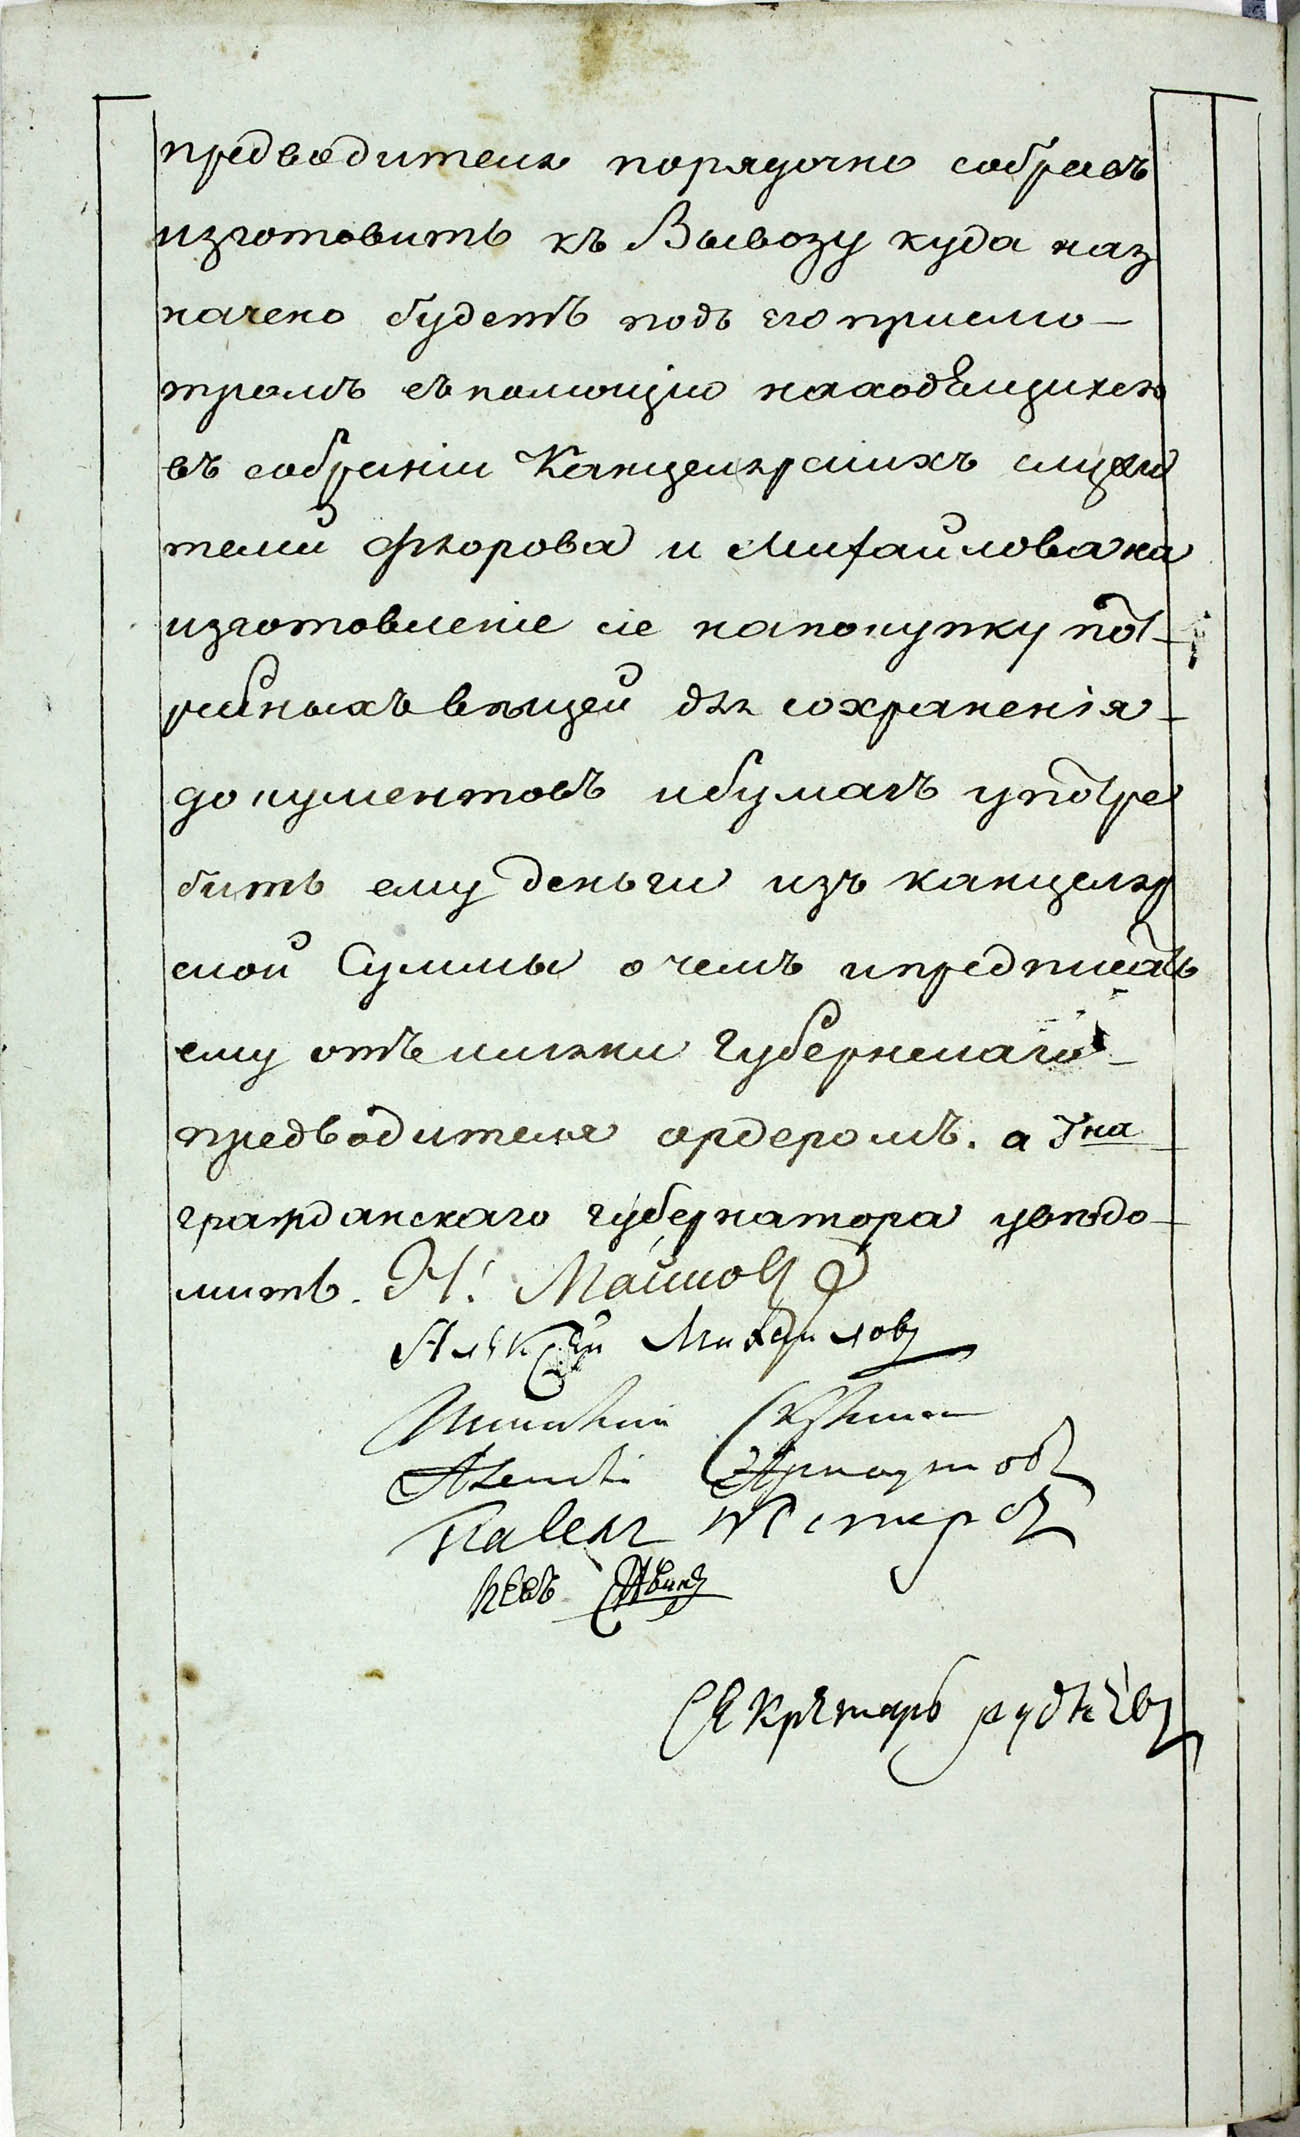 предводителя порядочно собравъ
изготовить къ Вывозу куда наз
начено будетъ подъ его присмо-
тромъ съ помощiю находящихся
въ собранiи Канцелярскихъ служи
телей Флорова и Михайлова на
изготовленiе сiе на покупку пот-
ребныхъ вѣщей для сохраненiя-
документовъ и бумагъ употре
бить ему деньги изъ канцеляр
ской Суммы о чемъ и предписать
ему отъ лица губернскаго-
предводителя ордеромъ. а Гна-
гражданскаго губернатора увѣдо-
мить. Н:
Алексей Михайловъ
Павелъ
Левъ
Секретарь Руднѣвъ